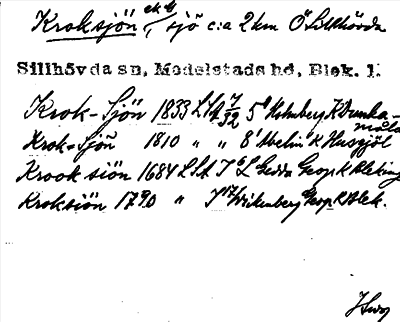 Kroksjön ek 4 sjö c:a 2 km Ö Sillhövda
Sillhövda sn, Medelstads hd, Blek. l.
Krok-Sjön 1833 LSA 7/32 5' Holmberg K Drunkamåla
Krok-Sjön 1810 " " 8' Abelin K Husgjöl
Krook siön 1684 LSA T 6 L Gedda Geogr K Bleking
Kroksiön 1790 " T 17 Wikenberg Geogr K Blek.